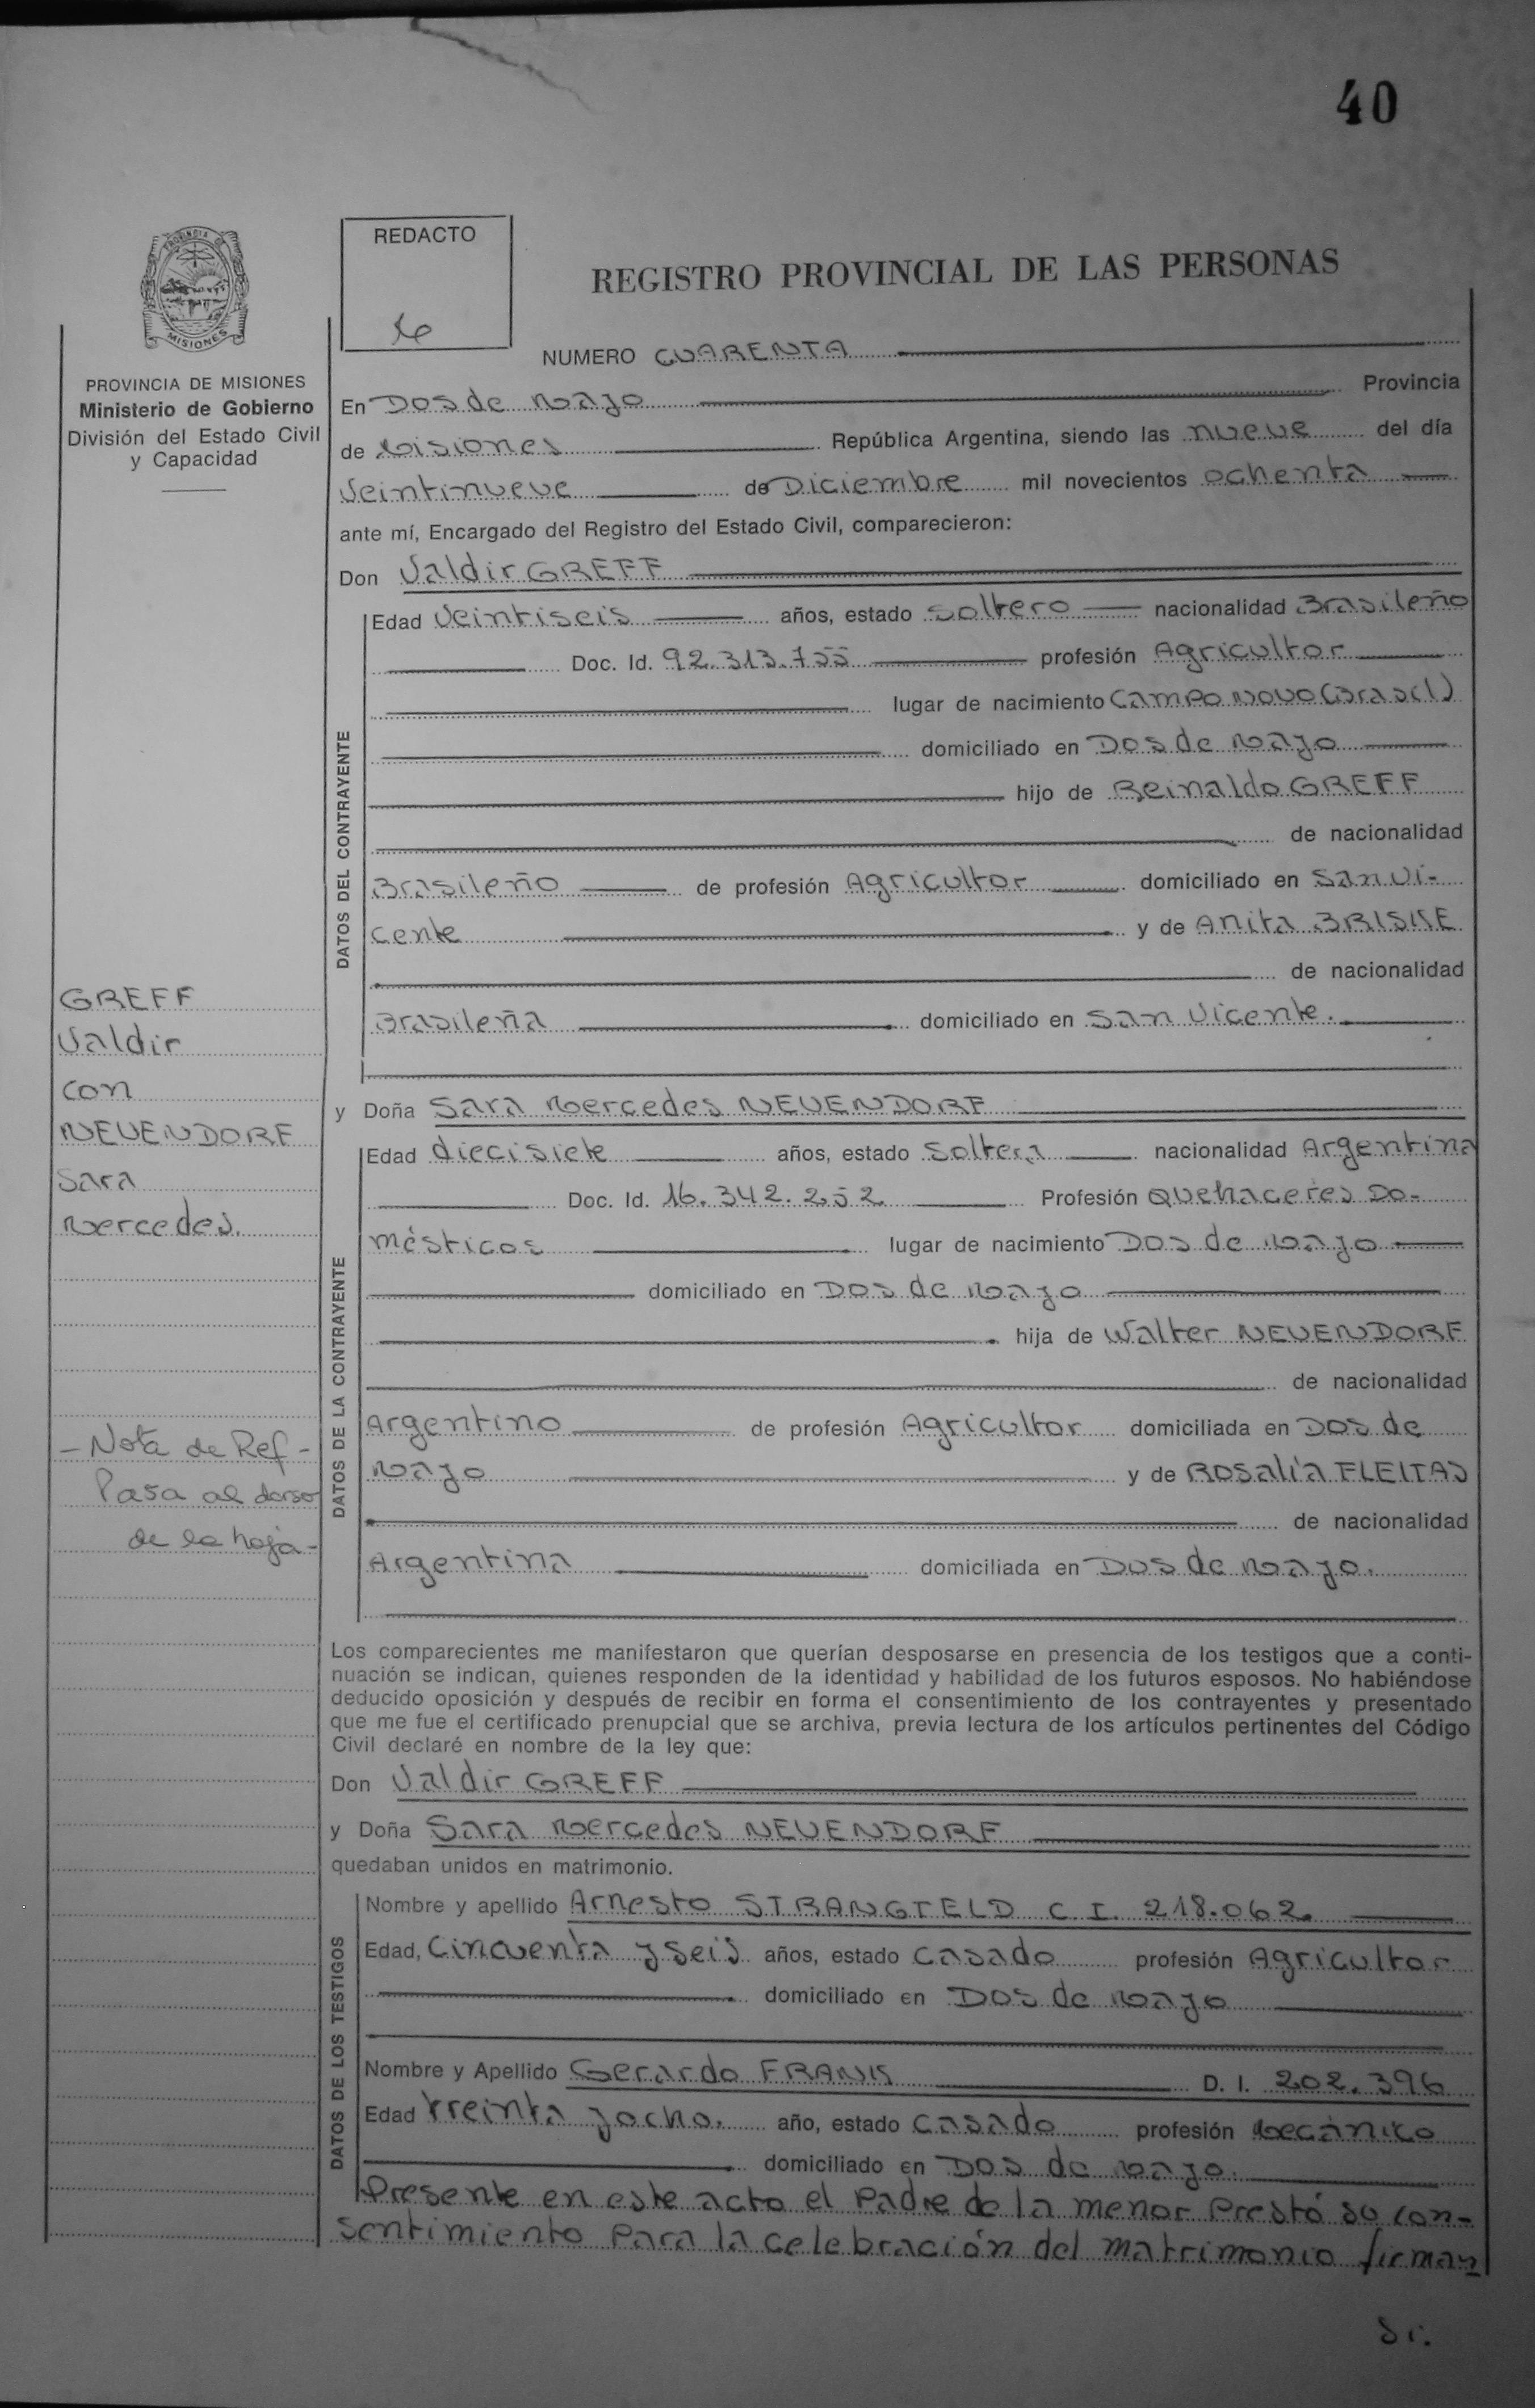 40
REDACTO
REGISTRO PROVINCIAL DE LAS PERSONAS
PROVINCIA DE
MISIONES
NUMERO CUARENTA
PROVINCIA DE MISIONES
Ministerio de Gobierno
División del Estado Civil
y Capacidad
En Dos de Mayo Provincia
de Misiones República Argentina, siendo las nueve del día
Veintinueve de Diciembre mil novecientos ochenta
ante mí, Encargado del Registro del Estado Civil, comparecieron:
Don Valdir GREFF
DATOS DEL CONTRAYENTE
Edad Veintiseis años, estado Soltero nacionalidad Brasileño
Doc. Id. 92.313.755 profesión Agricultor
lugar de nacimiento Campo Novo (Brasil)
domiciliado en Dos de Mayo
hijo de Reinaldo GREFF
de nacionalidad
Brasileño de profesión Agricultor domiciliado en San Vi-
cente y de Anita BRISKE
de nacionalidad
Brasileña domiciliado en San Vicente.
GREFF
Valdir
con
NEUENDORF
Sara
Mercedes.
y Doña Sara Mercedes NEUENDORF
DATOS DE LA CONTRAYENTE
Edad diecisiete años, estado Soltera nacionalidad Argentina
Doc. Id. 16.342.252 Profesión Quehaceres Do-
mésticos lugar de nacimiento Dos de Mayo
domiciliado en Dos de Mayo
hija de Walter NEUENDORF
de nacionalidad
Argentino de profesión Agricultor domiciliada en Dos de
Mayo y de Rosalía FLEITAS
de nacionalidad
Argentina domiciliada en Dos de Mayo.
- Nota de Ref -
Pasa al dorso
de la hoja -
Los comparecientes me manifestaron que querían desposarse en presencia de los testigos que a conti-
nuación se indican, quienes responden de la identidad y habilidad de los futuros esposos. No habiéndose
deducido oposición y después de recibir en forma el consentimiento de los contrayentes y presentado
que me fue el certificado prenupcial que se archiva, previa lectura de los artículos pertinentes del Código
Civil declaré en nombre de la ley que:
Don Valdir GREFF
y Doña Sara Mercedes NEUENDORF
quedaban unidos en matrimonio.
DATOS DE LOS TESTIGOS
Nombre y apellido Arnesto STRANGFELD C.I. 218.062
Edad, Cincuenta y seis años, estado Casado profesión Agricultor
domiciliado en Dos de Mayo
Nombre y Apellido Gerardo FRANK D. I. 202.396
Edad treinta y ocho. año, estado Casado profesión Mecánico
domiciliado en Dos de Mayo.
Presente en este acto el Padre de la menor Prestó su con-
sentimiento Para la celebración del matrimonio firman